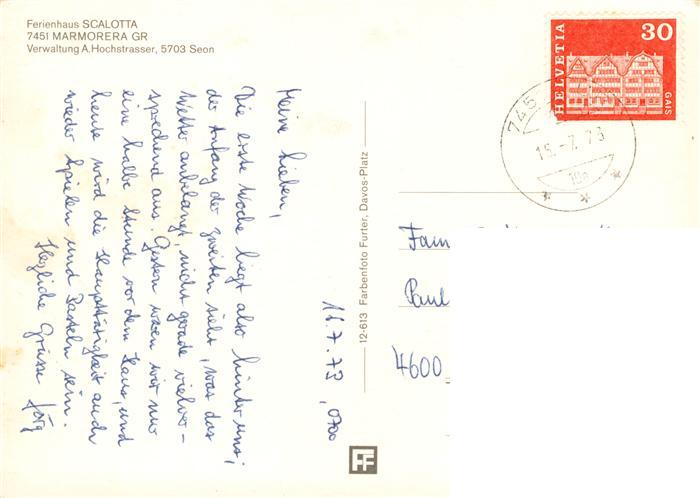 Ferienhaus SCALOTTA
7451 MARMORERA GR
Verwaltung A. Hochstrasser, 5703 Seon
Meine Lieben,
Die erste Woche liegt also hinter uns;
der Anfang der zweiten sieht, was das
Wetter anbelangt, nicht gerade vielver-
sprechend aus. Gestern waren wir nur
eine halbe Stunde vor dem Haus, und
heute wird die Haupttätigkeit auch
wieder Spielen und Basteln sein.
Herzliche Grüsse Jörg
7.73, 0700
12-613 Farbenfoto Furter, Davos-Platz
FF
HELVETIA
30
GAIS
745
-7.73
Fam
Paul
4600